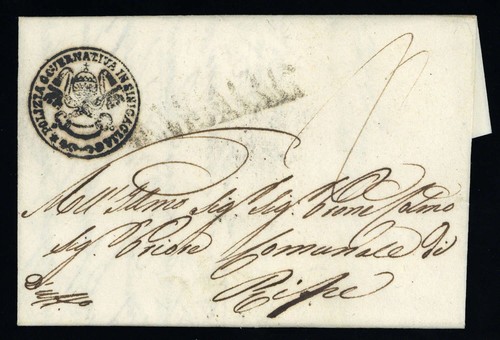 POLIZIA GOVERNATIVA IN SINIGAGLIA
All'Illmo Sig. Sig. Prone Colmo
Sig. Priore Comunale di
Ripe